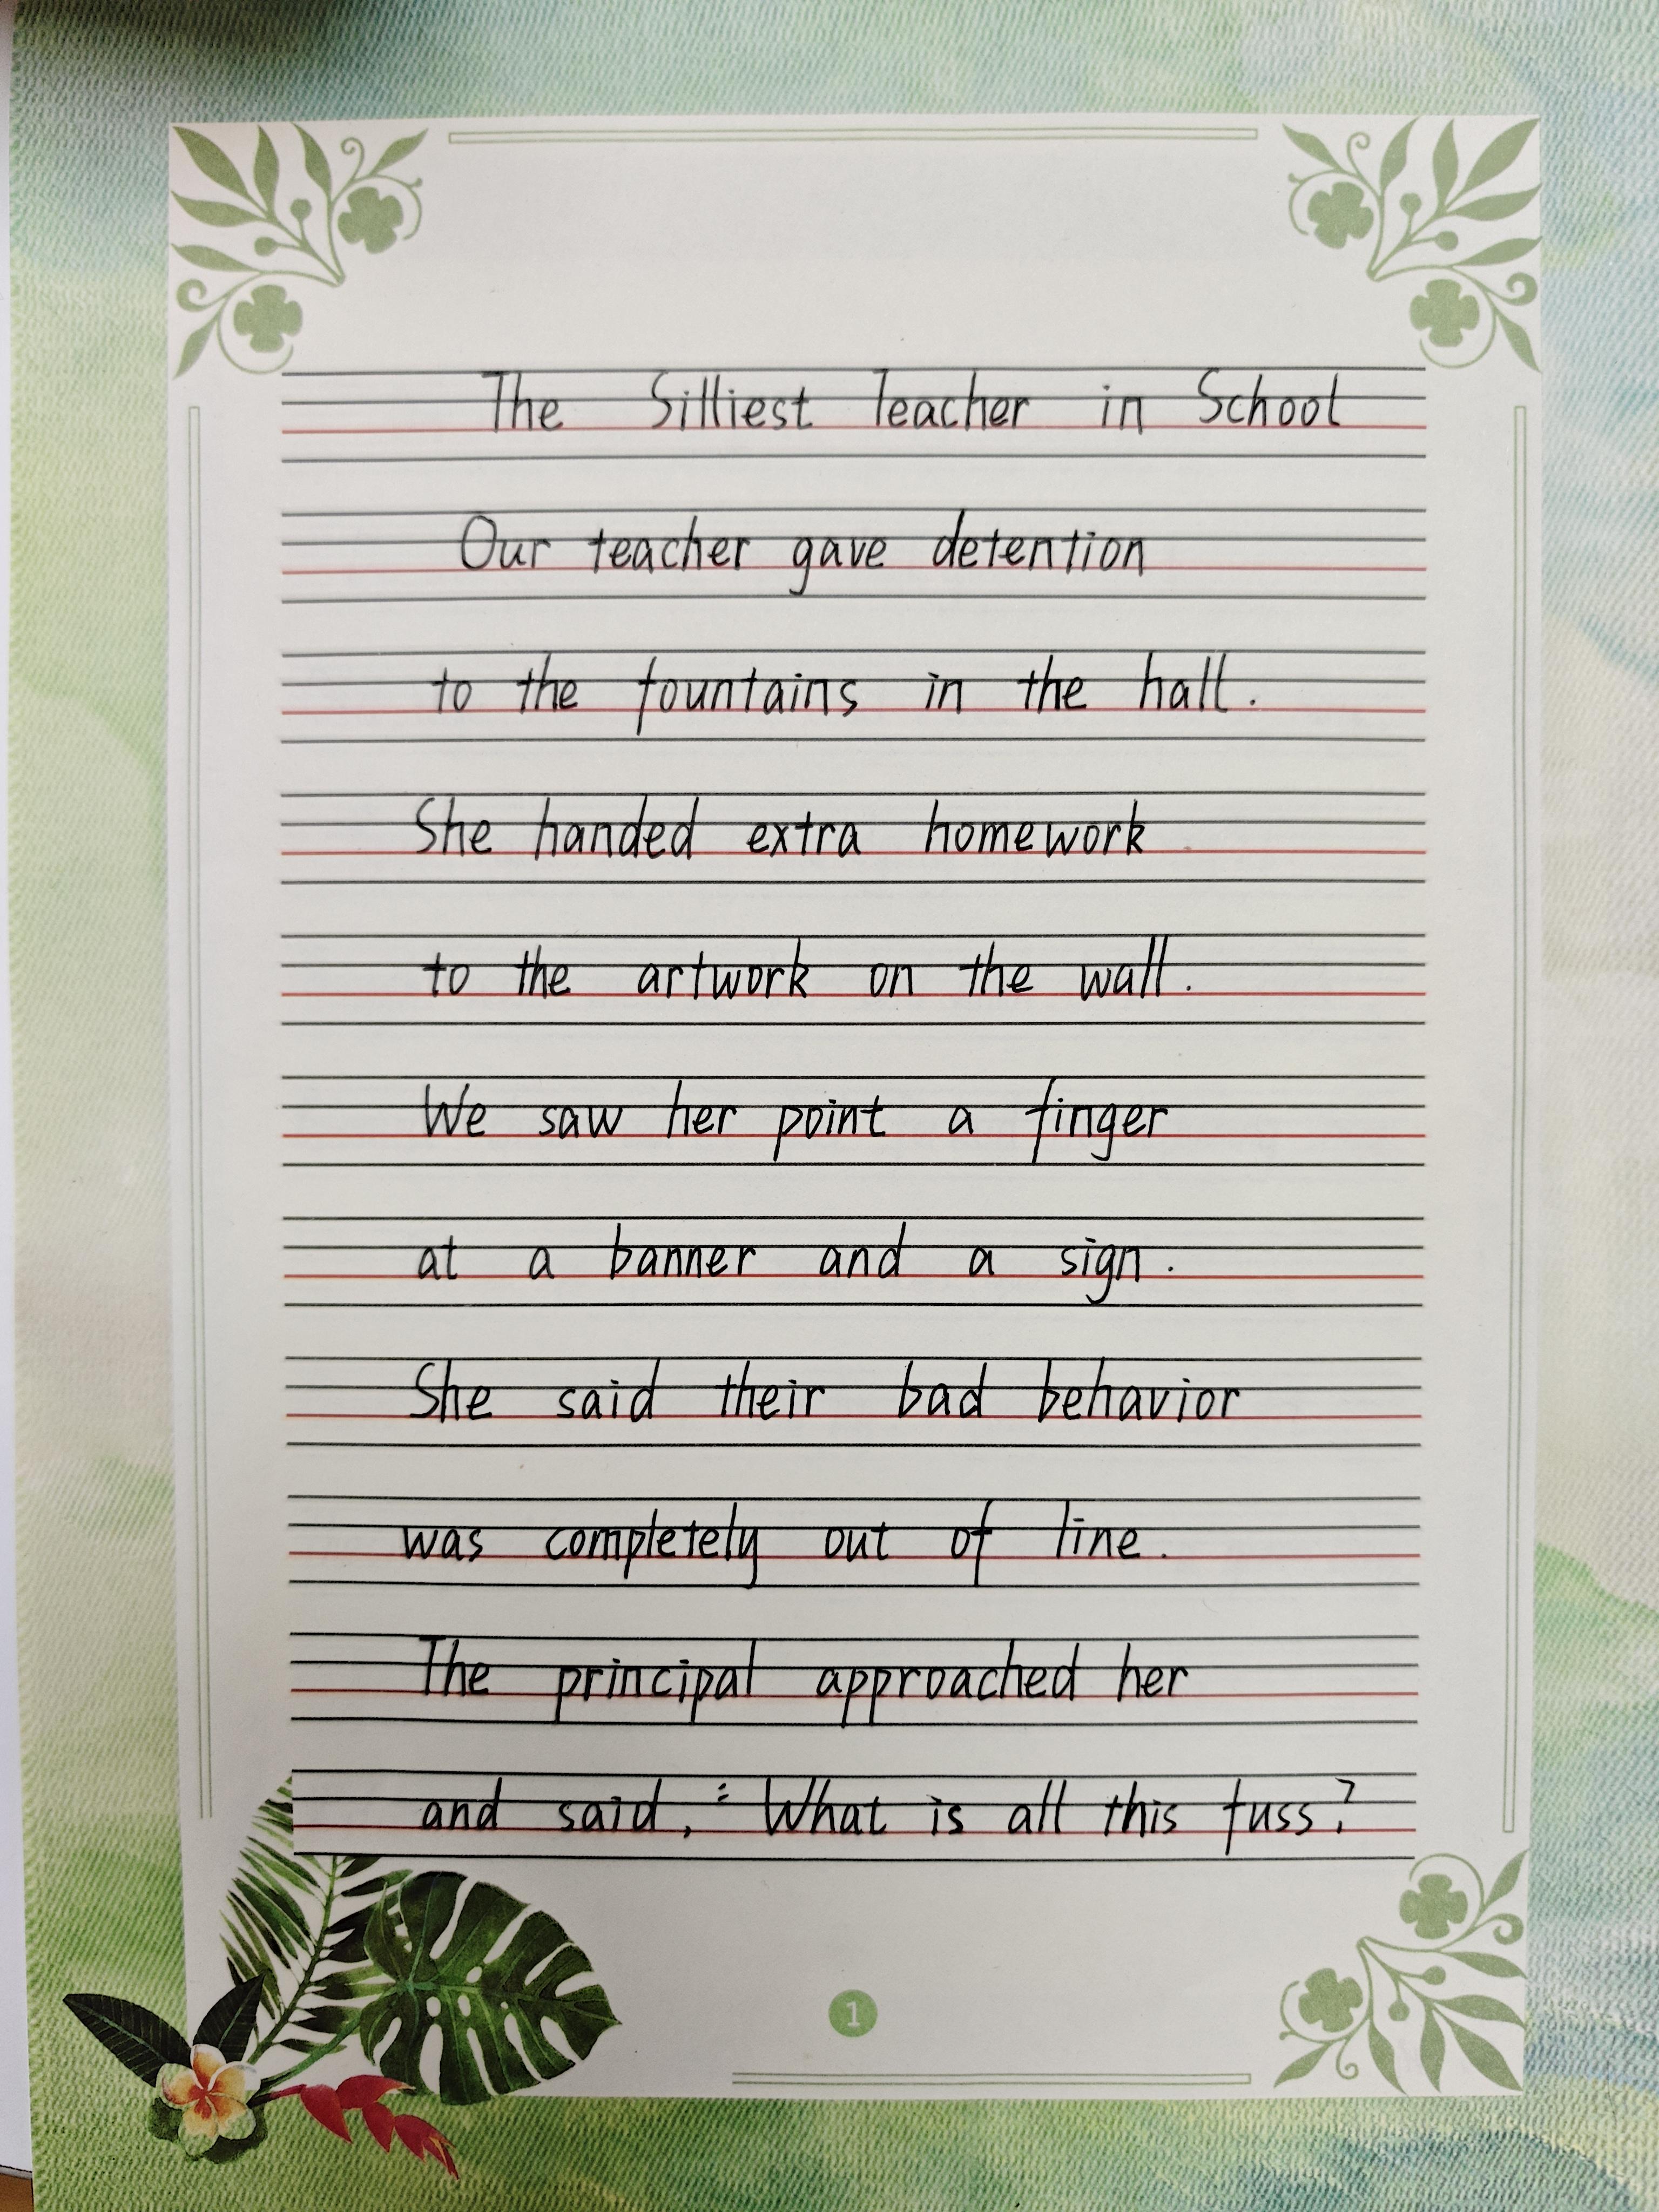 The Silliest Teacher in School
Our teacher gave detention
to the fountains in the hall.
She handed extra homework
to the artwork on the wall.
We saw her point a finger
at a banner and a sign.
She said their bad behavior
was completely out of line.
The principal approached her
and said, “What is all this fuss?
1